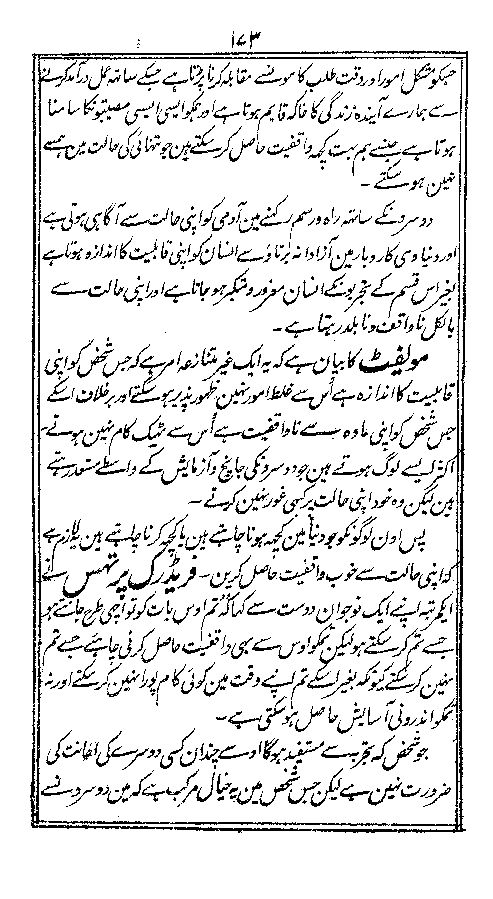 ۱۷۳
جبکو مشکل امور اور دقت طلب کامونسے مقابلہ کرنا پڑتا ہے جسکے ساتھ عمل درآمد کرنے
سے ہمارے آیندہ زندگی کا خاکہ قایم ہوتا ہے اور ہمکو ایسی ایسی مصیبتونکا سامنا
ہوتا ہے جنسے ہم بہت کچھ واقفیت حاصل کرسکتے ہین جو تنہائی کی حالت مین ہمسے
نہین ہوسکتے ۔
دوسرونکے ساتھ راہ ورسم رکہنے مین آدمی کو اپنی حالت سے آگاہی ہوتی ہے
اور دنیاوی کاروبار مین آزادانہ برتاؤ سے انسان کو اپنی قابلیت کا اندازہ ہوتا ہے
بغیر اس قسم کے تجربونکے انسان مغرور ومتکبر ہوجاتا ہے اور اپنی حالت سے
بالکل ناواقف ونابلد رہتا ہے ۔
مولفٹ کا بیان ہے کہ یہ ایک غیر متنازعہ امر ہے کہ جس شخص کو اپنی
قابلیت کا اندازہ ہے اُس سے غلط امور نہین ظہور پذیر ہوسکتے اور برخلاف اسکے
جس شخص کو اپنی مادہ سے ناواقفیت ہے اُس سے ٹہیک کام نہین ہوتے ۔
اکثر ایسے لوگ ہوتے ہین جو دوسرونکی جانچ و آزمایش کے واسطے مستعد رہتے
ہین لیکن وہ خود اپنی حالت پر کبھی غور نہین کرتے ۔
پس اون لوگونکو جو دنیا مین کچھ ہونا چاہتے ہین یا کچھ کرنا چاہتے ہین یہ لازم ہے
کہ اپنی حالت سے خوب واقفیت حاصل کرین ۔ فریڈرک پرتہس نے
ایکمرتبہ اپنے ایک نوجوان دوست سے کہا کہ تم اوس بات کو تو اچھی طرح جانتے ہو
جسے تم کرسکتے ہو لیکن تمکو اوس سے بھی واقفیت حاصل کرنی چاہئے جسے تم
نہین کرسکتے کیونکہ بغیر اسکے تم اپنے وقت مین کوئی کام پورا نہین کرسکتے اور نہ
تمکو اندرونی آسایش حاصل ہوسکتی ہے ۔
جو شخص کہ تجربہ سے مستفید ہوگا اوسے چندان کسی دوسرے کی اعانت کی
ضرورت نہین ہے لیکن جس شخص مین یہ خیال مرکب ہے کہ مین دوسرونسے